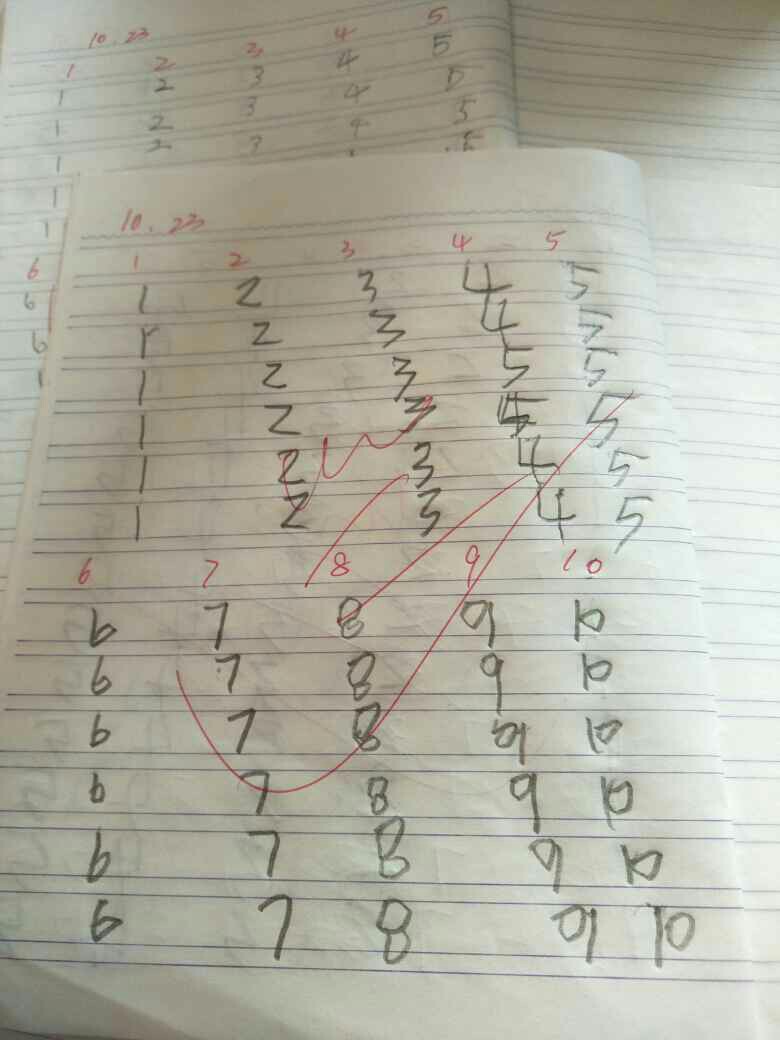 10.23
1 2 3 4 5
1 2 3 4 5
1 2 3 4 5
1 2 3 4 5
1 2 3 5
1
1
6
6
6
10.23
1 2 3 4 5
1 2 3 4 5
1 2 3 4 5
1 2 3 5 5
1 2 3 5
1 2 3 4 5
1 2 3 4 5
6 7 8 9 10
6 7 8 9 10
6 7 8 9 10
6 7 8 9 10
6 7 8 9 10
6 7 8 9 10
6 7 8 9 10